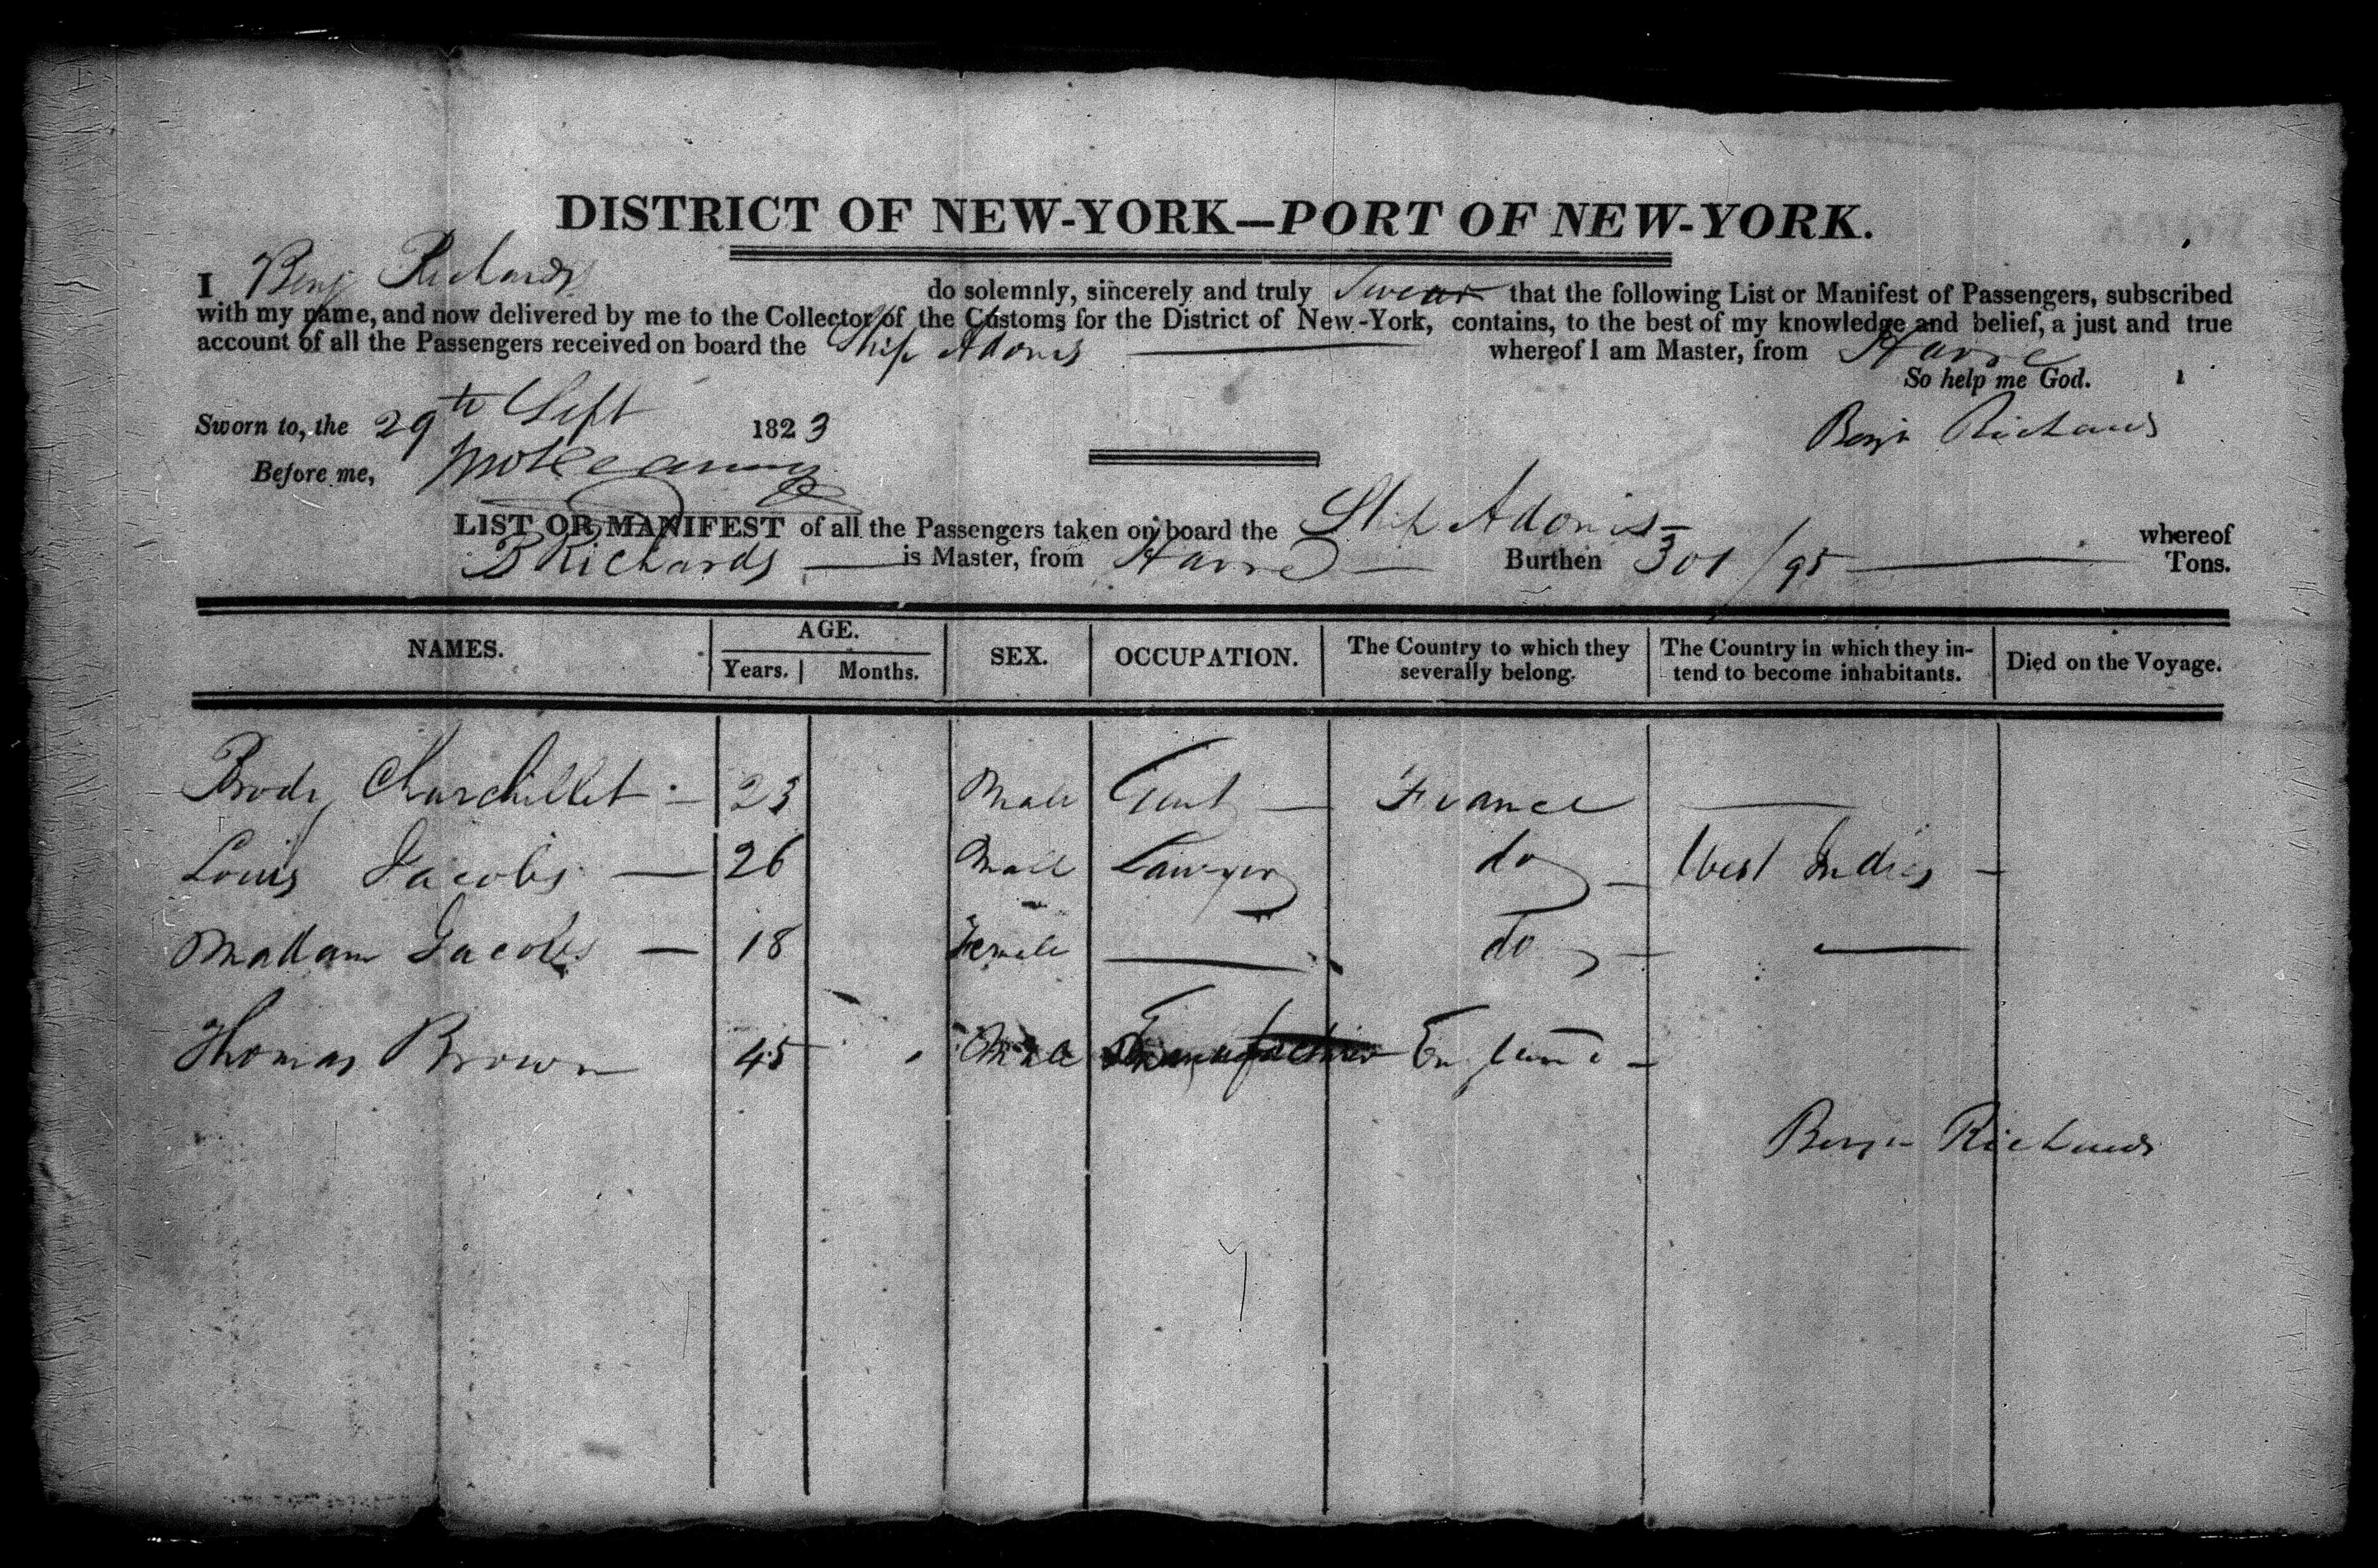 DISTRICT OF NEW-YORK—PORT OF NEW-YORK.
I Benj Richards do solemnly, sincerely and truly Swear that the following List or Manifest of Passengers, subscribed
with my name, and now delivered by me to the Collector of the Customs for the District of New-York, contains, to the best of my knowledge and belief, a just and true
account of all the Passengers received on board the Ship Adonis whereof I am Master, from Havre
So help me God.
Sworn to, the 29th Sept 1823
Benjn Richards
Before me,
LIST OR MANIFEST of all the Passengers taken on board the Ship Adonis whereof
B Richards is Master, from Havre Burthen 301/95 Tons.
NAMES. AGE. SEX. OCCUPATION. The Country to which they severally belong. The Country in which they intend to become inhabitants. Died on the Voyage.
Years. Months.
23 Male Gent France
Louis Jacobs 26 Male Lawyer do West Indies
Madam Jacobs 18 Female do
Thomas Brown 45 Male England
Benjn Richards